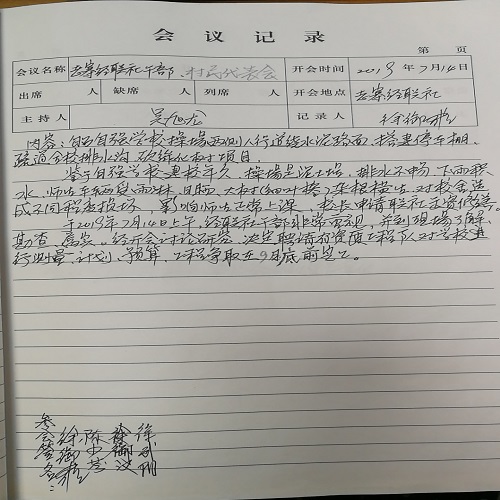 会议记录
第 页
会议名称 老寨经联社干部、村民代表会 开会时间 2019年7月14日
出席 人 缺席 人 列席 人 开会地点 老寨经联社
主持人 吴旭龙 记录人 徐御
内容：自强学校操场两侧人行道铺水泥路面、搭建停车棚、
疏通全校排水沟、砍绿化树项目。
鉴于自强学校建校年久，操场是泥土场，排水不畅，下雨积
水，师生车辆受雨淋、日晒，大树（细叶榕）根横生，对校舍造
成不同程度损坏，影响师生正常上课，校长申请联社出资修缮。
于2019年7月14日上午，经联社干部非常重视，并到现场了解、
勘查、落实。经开会讨论研究，决定聘请有资质工程队对学校进
行测量、计划、预算，工程争取在9月底前完工。
参会签名：
徐御 陈少 徐 徐